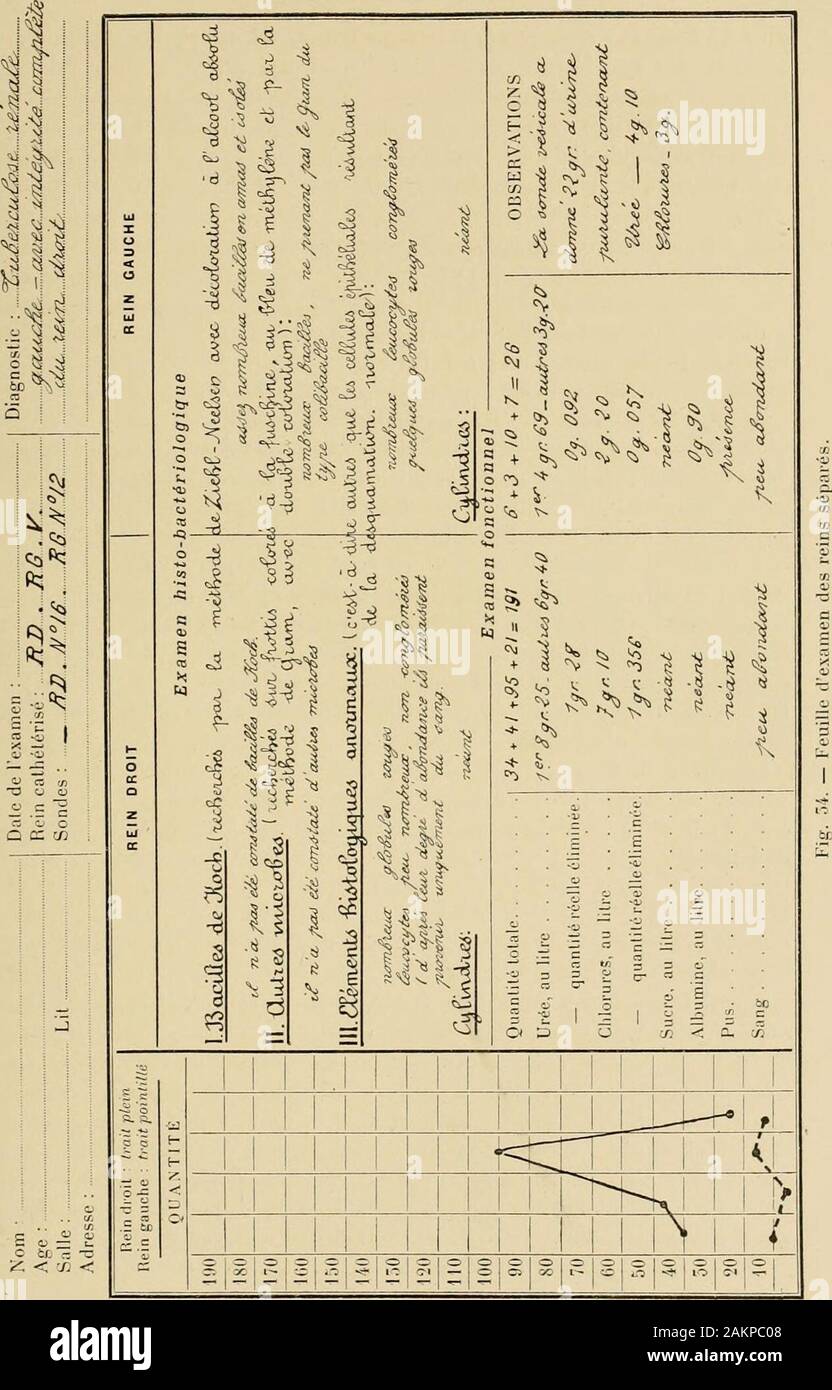 Nom :
Age :
Salle : Lit
Adresse :
Date de l'examen :
Rein cathétérisé : RD. RG. V.
Sondes : — RD. N°16. RG N°12
Diagnostic : Tuberculose rénale
gauche - avec intégrité complète
du rein droit
Rein droit : trait plein
Rein gauche : trait pointillé
QUANTITÉ
190
180
170
160
150
140
130
120
110
100
90
80
70
60
50
40
30
20
10
REIN DROIT REIN GAUCHE
Examen histo-bactériologique
I. Bacilles de Koch. (recherchés par la méthode de Ziehl-Neelsen avec décoloration à l'alcool absolu
il n'a pas été constaté de bacilles de Koch. assez nombreux bacilles en amas et isolés
II. Autres microbes. (recherchés sur frottis colorés à la fuschine, au bleu de méthylène et par la
méthode de Gram, avec double coloration):
il n'a pas été constaté d'autres microbes nombreux bacilles, ne prenant pas le Gram du
type colibacille
III. Eléments histologiques anormaux. (c'est-à dire autres que les cellules épithéliales résultant
de la desquamation normale):
nombreux globules rouges
leucocytes peu nombreux, non conglomérés
(d'après leur degré d'abondance ils paraissent
provenir uniquement du sang.
nombreux leucocytes conglomérés
quelques globules rouges
Cylindres: néant Cylindres: néant
Examen fonctionnel
OBSERVATIONS
Quantité totale 34 + 41 + 95 + 21 = 191 6 + 3 + 10 + 7 = 26
Urée, au litre 1er 8gr.25 - autres 6gr.40 1er 4gr.69 - autres 3g.20
— quantité réelle éliminée. 1gr. 28 0g. 092
Chlorures, au litre 7gr. 10 2g. 20
— quantité réelle éliminée. 1gr. 356 0g. 057
Sucre, au litre néant néant
Albumine, au litre néant 0g. 90
Pus néant présence
Sang peu abondant peu abondant
La sonde vésicale a
donné 22gr. d'urine
purulente, contenant
Urée — 4g. 10
Chlorures - 3g.
Fig. 54. — Feuille d'examen des reins séparés.
alamy
Image ID: 2AKPC08
www.alamy.com